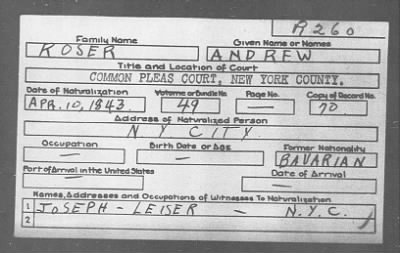 R260
Family Name Given Name or Names
KOSER ANDREW
Title and Location of Court
COMMON PLEAS COURT, NEW YORK COUNTY.
Date of Naturalization Volume or Bundle No. Page No. Copy of Record No.
APR. 10, 1843 49 — 70
Address of Naturalized Person
N. Y. CITY
Occupation Birth Date or Age Former Nationality
— — BAVARIAN
Port of Arrival in the United States Date of Arrival
— —
Names, Addresses and Occupations of Witnesses To Naturalization
1 JOSEPH - LEISER - N.Y.C.
2